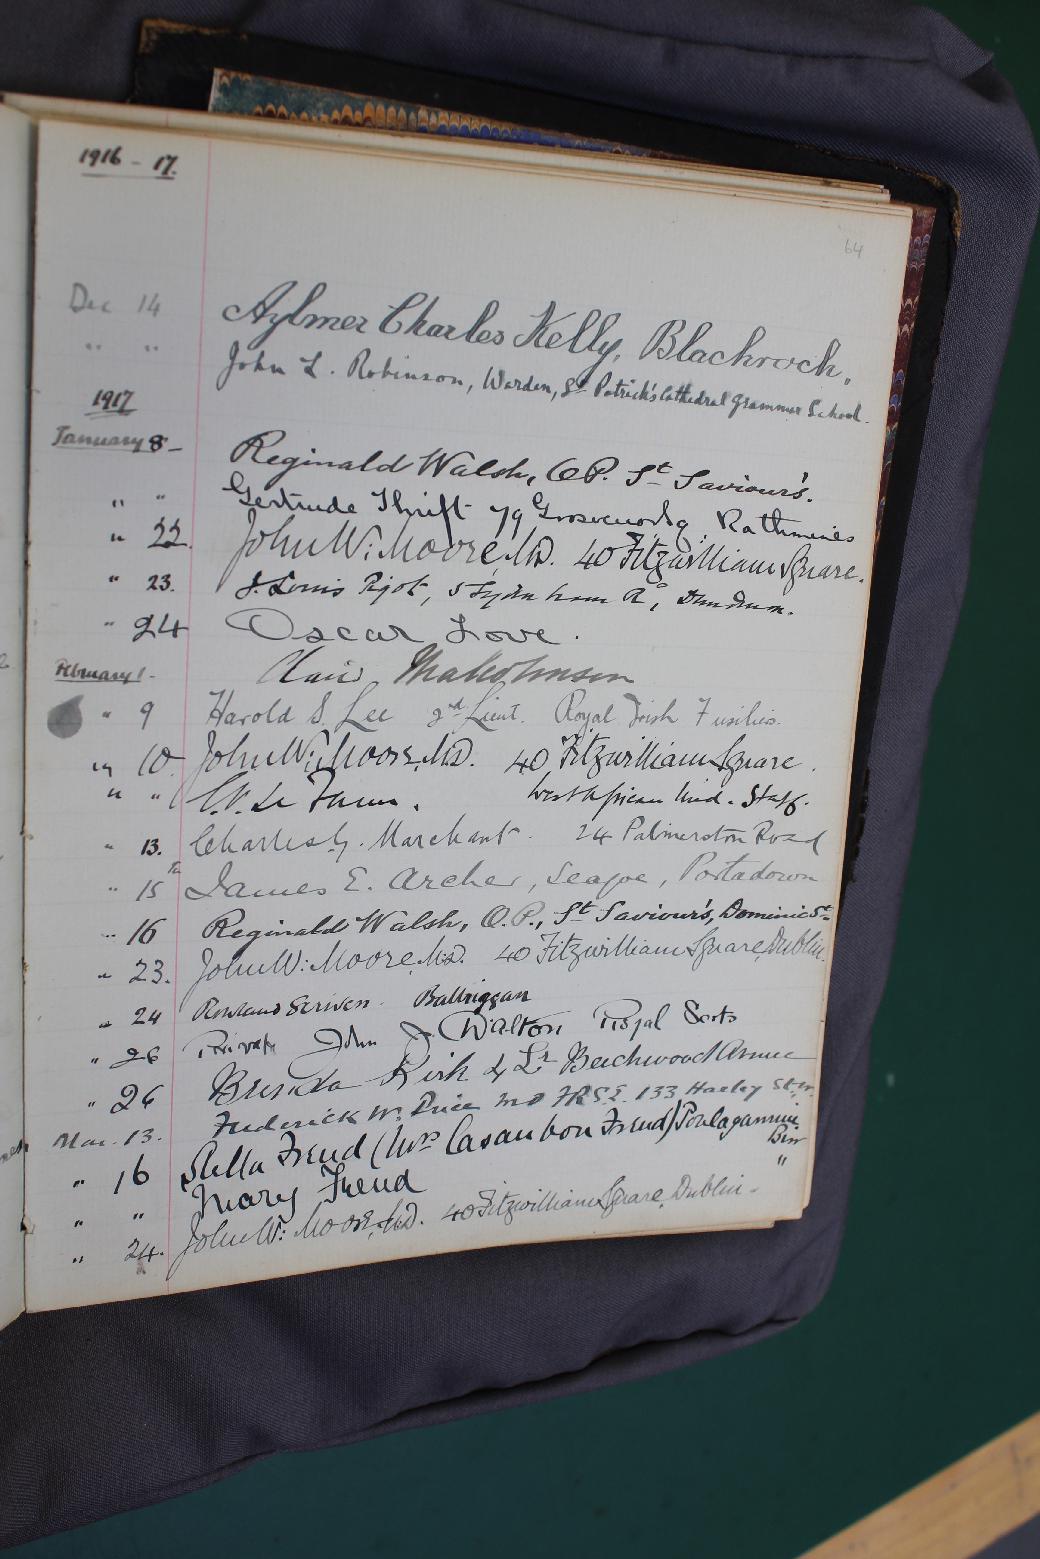 1916 - 17.
64
Dec 14 Aylmer Charles Kelly, Blackrock.
" " John L. Robinson, Warden, St Patrick's Cathedral Grammar School.
1917
January 8 - Reginald Walsh, O.P. St Saviour's.
" " Gertrude Thrift 79 Grosvenor Sq. Rathmines
" 22. John W: Moore, M.D. 40 Fitzwilliam Square.
" 23. J. Louis Rigot, 5 Sydenham Rd, Dundrum.
" 24 Oscar Love.
February 1 - Malcolmson
" 9 Harold S. Lee 2nd Lieut. Royal Irish Fusiliers.
" 10 John W: Moore, M.D. 40 Fitzwilliam Square.
" " West African Med. Staff.
" 13. Charles G. Marchant. 24 Palmerston Road
" 15th James E. Archer, Seagoe, Portadown
" 16 Reginald Walsh, O.P., St Saviour's, Dominic St
" 23. John W: Moore, M.D. 40 Fitzwilliam Square, Dublin.
" 24 Rowland Scriven. Balbriggan
" 26 Private John J. Walton Royal Scots
" 26 Brenda Kirk 4 Lr Beechwood Avenue
Mar. 13. Frederick W. Price M.D. F.R.S.E. 133 Harley St. W.
" 16 Stella Frend (Mrs Casaubon Frend)
Birr
" " Mary Frend "
" 24. John W: Moore, M.D. 40 Fitzwilliam Square, Dublin.